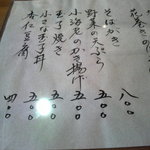 花巻き
そばがき 八〇〇
野菜の天ぷら 五〇〇
小海老のかき揚げ 五〇〇
玉子焼き 五〇〇
小さな玉子丼 五〇〇
杏仁豆腐 四〇〇